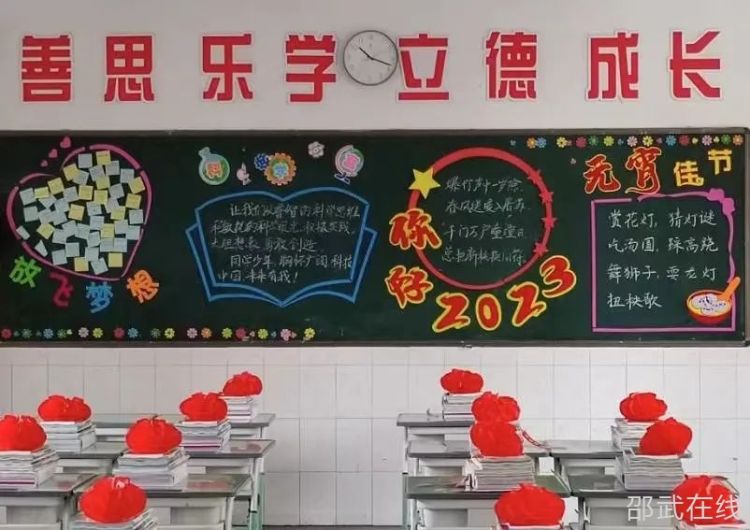 善思 乐学 立德 成长
放飞梦想
科
让我们以睿智的科学思维
大胆想象 勇敢创造
同学少年 胸怀广阔 科技
中国 未来有我！
爆竹声中一岁除
春风送暖入屠苏
千门万户曈曈日
总把新桃换旧符
你好2023
元宵佳节
赏花灯，猜灯谜
吃汤圆，踩高跷
舞狮子，耍龙灯
扭秧歌
邵武在线